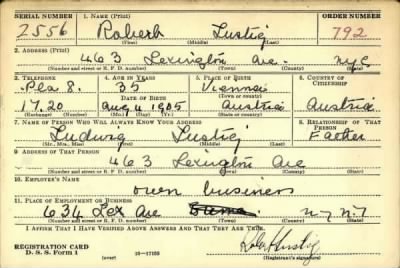 SERIAL NUMBER 1. NAME (Print) ORDER NUMBER
2556 Robert Lustig 792
(First) (Middle) (Last)
2. ADDRESS (Print)
463 Lexington Ave. NYC
(Number and street or R. F. D. number) (Town) (County) (State)
3. TELEPHONE 4. AGE IN YEARS 5. PLACE OF BIRTH 6. COUNTRY OF CITIZENSHIP
Plea 8. 35 Vienna
DATE OF BIRTH (Town or county)
1720 Aug 4 1905 Austria Austria
(Exchange) (Number) (Mo.) (Day) (Yr.) (State or country)
7. NAME OF PERSON WHO WILL ALWAYS KNOW YOUR ADDRESS 8. RELATIONSHIP OF THAT PERSON
Ludwig Lustig Father
(Mr., Mrs., Miss) (First) (Middle) (Last)
9. ADDRESS OF THAT PERSON
463 Lexington Ave
(Number and street or R. F. D. number) (Town) (County) (State)
10. EMPLOYER'S NAME
own business
11. PLACE OF EMPLOYMENT OR BUSINESS
634 Lex Ave N.Y. N.Y.
(Number and street or R. F. D. number) (Town) (County) (State)
I AFFIRM THAT I HAVE VERIFIED ABOVE ANSWERS AND THAT THEY ARE TRUE.
REGISTRATION CARD
D. S. S. Form 1 (over) 16—17105 (Registrant's signature)